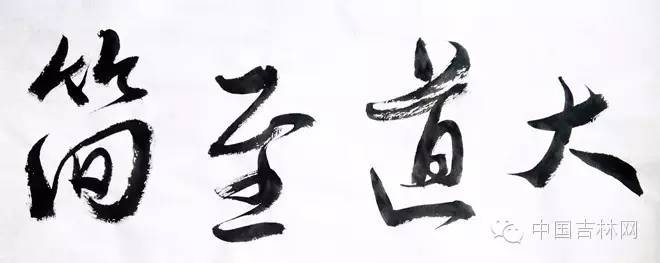 大道至简
中国吉林网